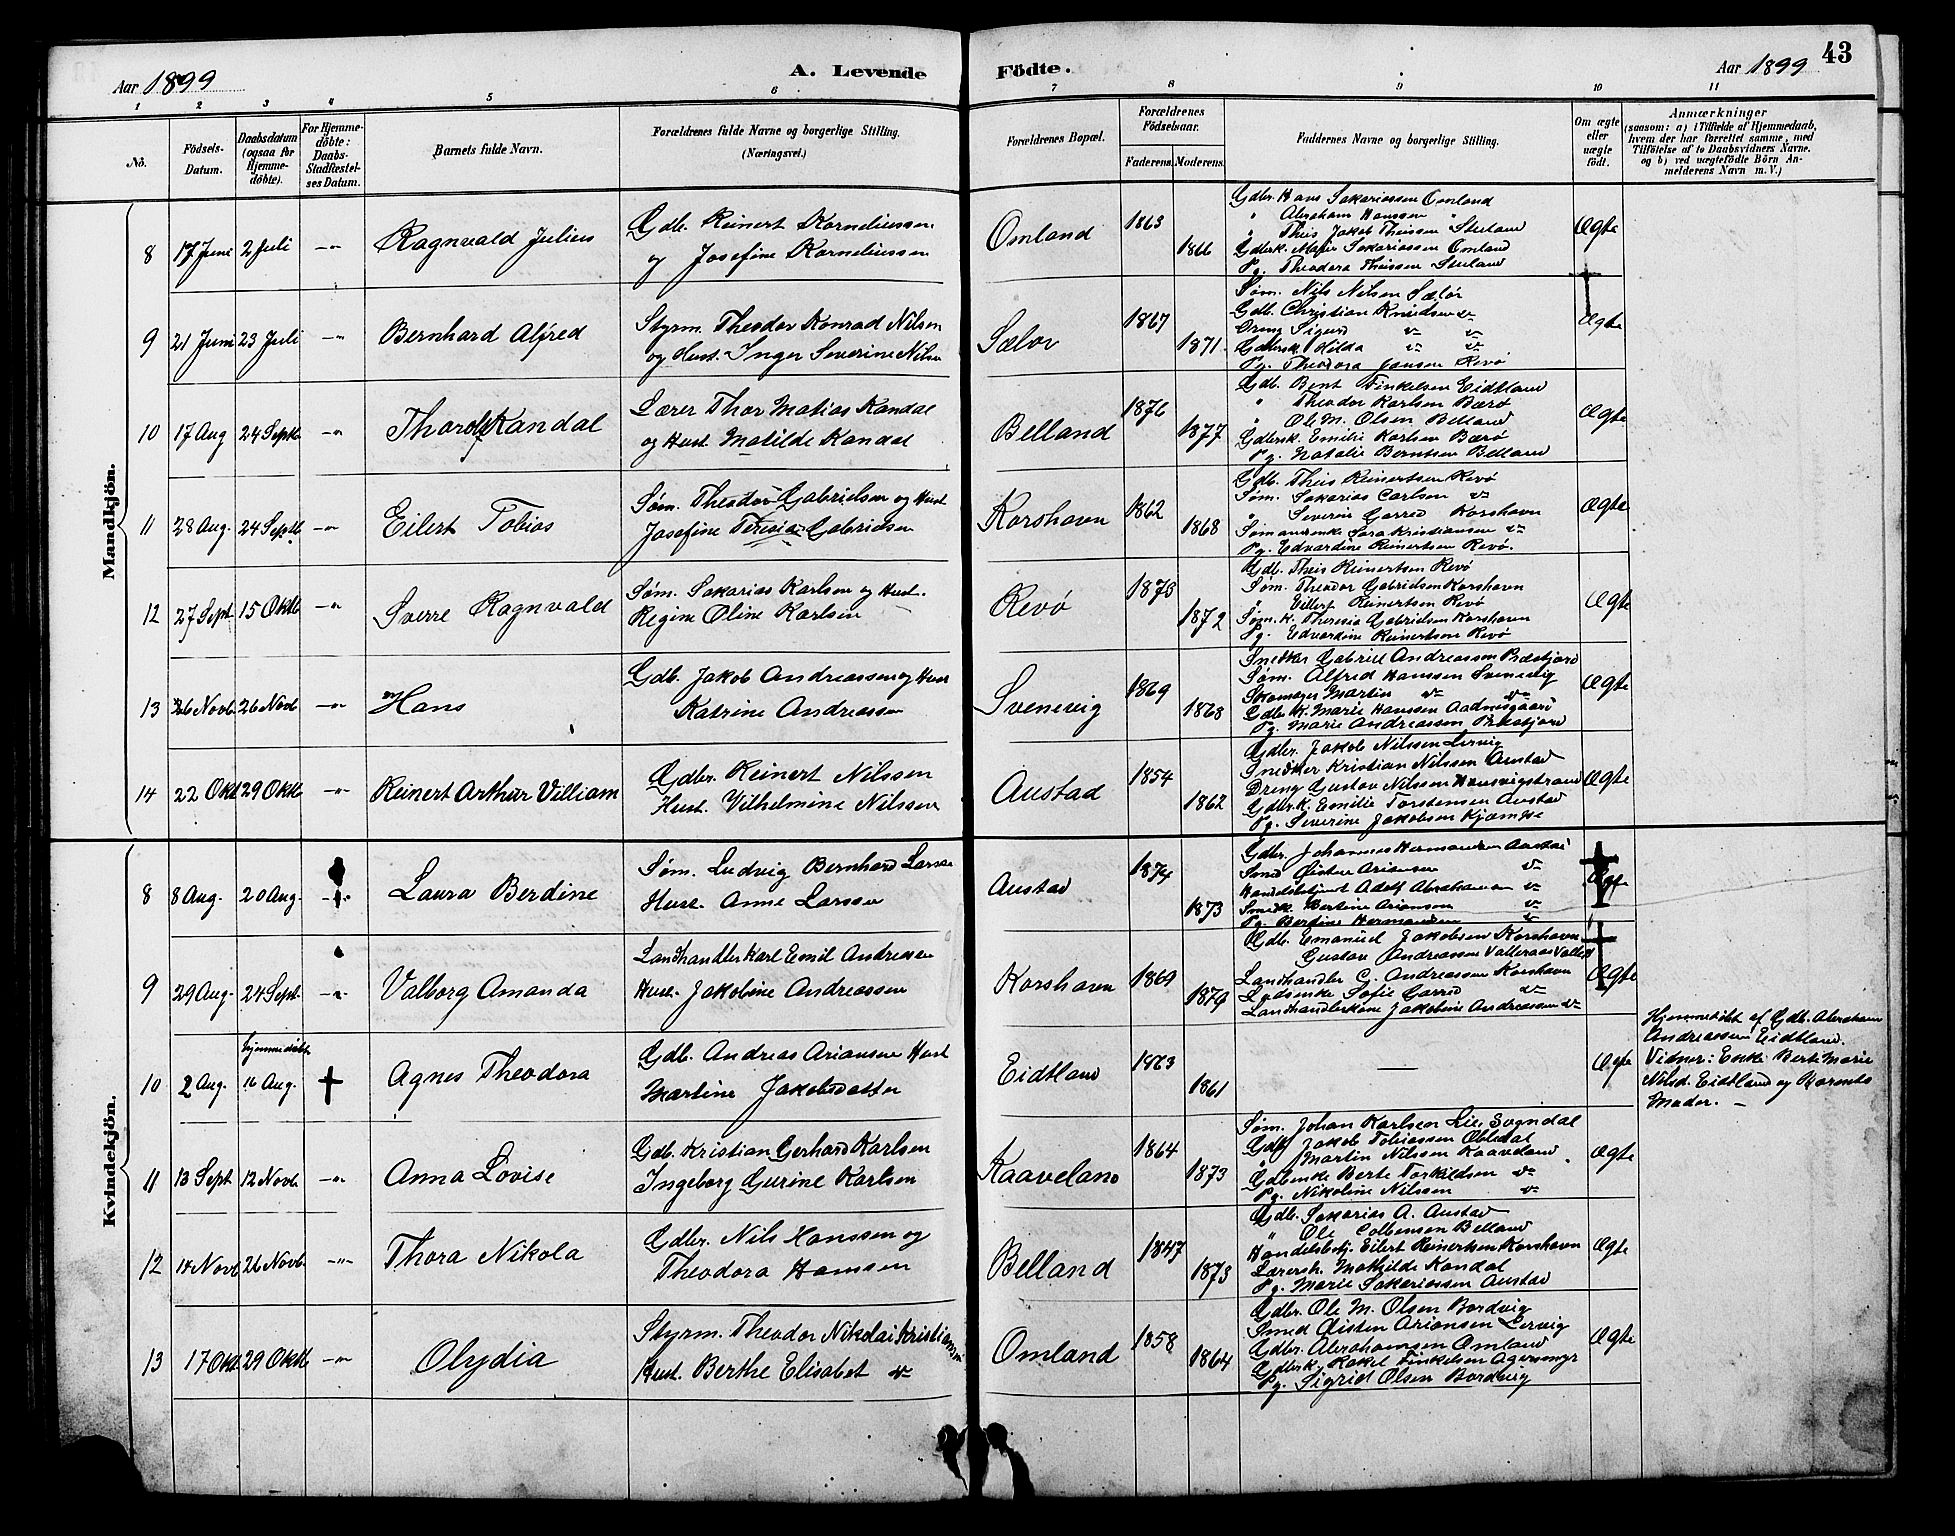 Aar 1899
A. Levende Födte.
Aar 1899
43
1 2 3 4 5 6 7 8 9 10 11
Nô.
Födsels-Datum.
Daabsdatum (ogsaa for Hjemme-døbte).
For Hjemme-døbte: Daabs-Stadfæstel-ses Datum.
Barnets fulde Navn.
Forældrenes fulde Navne og borgerlige Stilling.
(Næringsvei.)
Forældrenes Bopæl.
Forældrenes Födselsaar.
Faderens. Moderens.
Faddernes Navne og borgerlige Stilling.
Om ægte eller uægte født.
Anmærkninger
(saasom: a) i Tilfælde af Hjemmedaab,
hvem der har forrettet samme, med
Tilföielse af to Daabsvidners Navne.
og b) ved uægtefödte Börn An-
melderens Navn m. V.)
Mandkjön.
8 17 Juni 2 Juli -"- Ragnvald Julius
Gdb. Reinert Korneliussen
og Josefine Korneliussen
Omland 1863 1866
Gdbr. Hans Sakariassen Omland
" Abraham Hanssen "
" Theis Jakob Theissen Steiland
Gdbrsk. Marie Sakariassen Omland
Pg. Theodora Theissen Steiland
Ægte
9 21 Juni 23 Juli -"- Bernhard Alfred
Styrm. Theodor Konrad Nilsen
og Hust. Inger Severine Nilsen
Sælør 1867 1871.
Søm. Nils Nilsen Sælør
Gdb. Christian Knudsen "
Dreng Sigurd " "
Gdbersk. Hilda " "
Pg. Theodora Jansen Revø
Ægte
10 17 Aug 24 Septb -"- Thorolf Kandal
Lærer Thor Matias Kandal
og Hust. Matilde Kandal
Belland 1876 1877
Gdb. Bent Finkelsen Eidtland
" Theodor Karlsen Bærø
" Ole M. Olsen Belland
Gdbersk. Emilie Karlsen Bærø
Pg. Natalie Berntsen Belland
Ægte
11 28 Aug. 24 Septb. -"- Eilert Tobias
Søm. Theodor Gabrielsen og Hust
Josefine Teresia Gabrielsen
Korshavn 1862 1868
Gdb. Theis Reinertsen Revø
Søm. Sakarias Carlsen "
" Severin Garred Korshavn
Sømandsenke Sara Kristiansen "
Pg. Edvardine Reinertsen Revø.
Ægte
12 27 Sept 15 Oktb -"- Sverre Ragnvald
Søm. Sakarias Karlsen og Hust.
Regine Oline Karlsen
Revø 1875 1872
Gdb. Theis Reinertsen Revø
Søm. Theodor Gabrielsen Korshavn
" Eilert Reinertsen Revø
Søm. k. Theresia Gabrielsen Korshavn
Pg. Edvardine Reinertsen Revø
Ægte
13 26 Novb. 26 Novb -"- Hans
Gdb. Jakob Andreassen og Hust
Katrine Andreassen
Svenevig 1869 1868
Snedker Gabriel Andreassen Præstjord
Søm. Alfred Hanssen Svenevig
Skomager Martin " "
Gdbr. k. Marie Hanssen Aadnesgaard
Pg. Marie Andreassen Præstjord
Ægte
14 22 Okt 29 Oktb -"- Reinert Arthur Villiam
Gdbr. Reinert Nilssen
Hust. Vilhelmine Nilssen
Austad 1854 1862
Gdbr. Jakob Nilssen Lervig
Snedker Kristian Nilssen Austad
Dreng Gustav Nilssen Hausvigstrand
Gdbr.k. Emilie Torstensen Austad
Pg. Severine Jakobsen Kjæmpe
Ægte
Kvindekjön.
8 8 Aug. 20 Aug. -"- Laura Berdine
Søm. Ludvig Bernhard Larsen
Hust. Anne Larssen
Austad 1874 1873
Gdbr. Johannes Hermandsen Austad
Smed Østen Ariansen "
Handelsbetjent Adolf Abrahamsen "
Smedk. Bertine Ariansen "
Pg. Berdine Hermandsen "
Ægte
9 29 Aug. 24 Sept. -"- Valborg Amanda
Landhandler Karl Emil Andreassen
Hust. Jakobine Andreassen
Korshavn 1869 1879
Gdb. Emanuel Jakobsen Korshavn
Gustav Andreassen Valleraas
Landhandler C. Andreassen Korshavn
Sofie Garred "
Landhandlerkone Jakobine Andreassen "
Ægte
10 2 Aug. hjemmedøbt 16 Aug. Agnes Theodora
Gdb. Andreas Ariansen Hust
Martine Jakobsdatter
Eidtland 1863 1861
—
Ægte
Hjemmedøbt af Gdb. Abraham
Andreassen Eidtland.
Vidner: Enke Berte Marie
Nilsd. Eidtland og Barnets
Moder. —
11 13 Sept 12 Novb. -"- Anna Lovise
Gdb. Kristian Gerhard Karlsen
Ingeborg Gurine Karlsen
Kaaveland 1864 1873
Søm. Johan Karlsen Lie, Sogndal
Gdb. Jakob Tobiassen Obledal
" Martin Nilssen Kaaveland.
Gdbenke Berte Torkildsen "
Pg. Nikoline Nilssen "
Ægte
12 14 Novb 26 Novb. -"- Thora Nikola
Gdbr. Nils Hanssen og
Theodora Hanssen
Belland 1847 1873
Gdb. Sakarias A. Austad
" Ole Colbensen Belland
Handelsbetj. Eilert Reinertsen Korshavn
Lærersk. Mathilde Kandal
Pg. Marie Sakariassen Austad
Ægte
13 17 Okt. 29 Oktb -"- Olydia
Styrm. Theodor Nikolai Kristiansen
Hust. Berthe Elisabet "
Omland 1858 1864
Gdbr. Ole M. Olsen Bordvig
Smed Øisten Ariansen Lervig
Gdbr. Abrahamsen Omland
Gdbrsk. Rakel Finkelsen Agersmyr
Pg. Sigrid Olsen Bordvig
Ægte